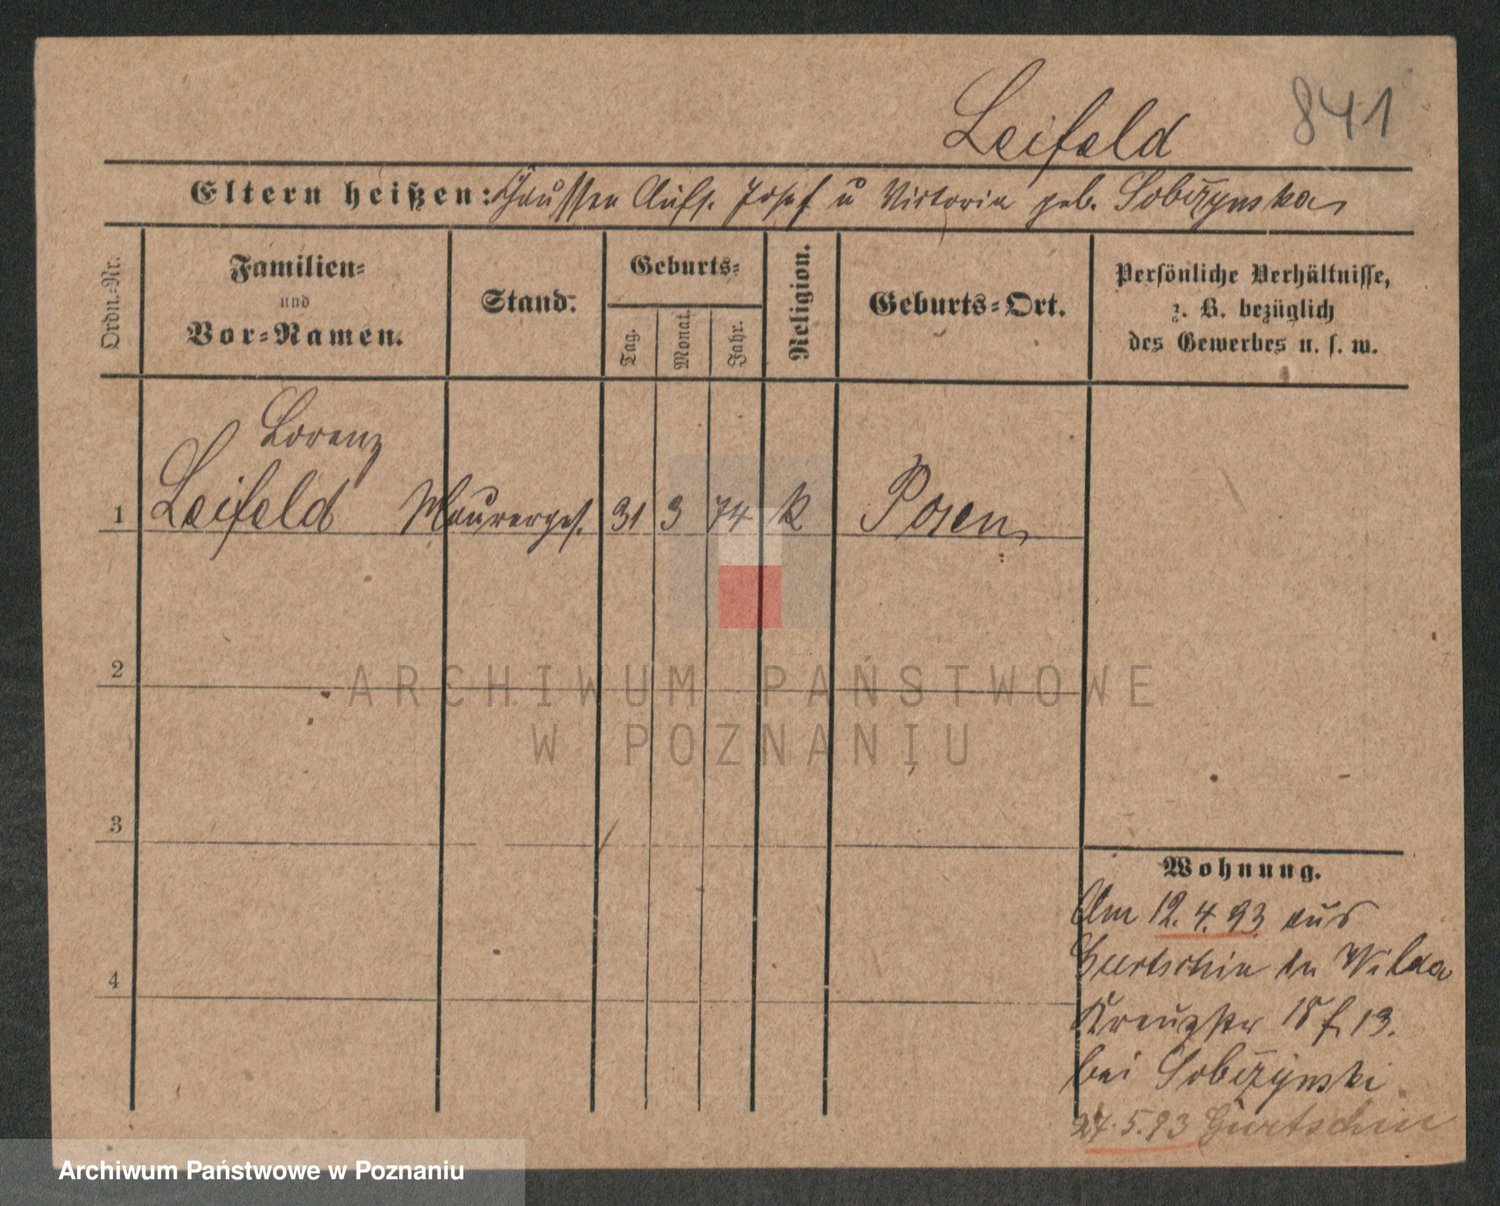 841
Leifeld
Eltern heißen: Chaussee Aufs. Josef u Victoria geb. Sobczynska
Ordn.-Nr.
Familien-
und
Vor-Namen.
Stand.
Geburts-
Tag.
Monat.
Jahr.
Religion.
Geburts-Ort.
Persönliche Verhältnisse,
z. B. bezüglich
des Gewerbes u. s. w.
Lorenz
1 Leifeld Maurerges. 31 3 74 k Posen
2
3
4
Wohnung.
Am 12.4.93 aus
Gurtschin in Wilda
Kreuzstr 18 f. 13.
bei Sobczynski
27.5.93 Gurtschin
ARCHIWUM PAŃSTWOWE
W POZNANIU
Archiwum Państwowe w Poznaniu